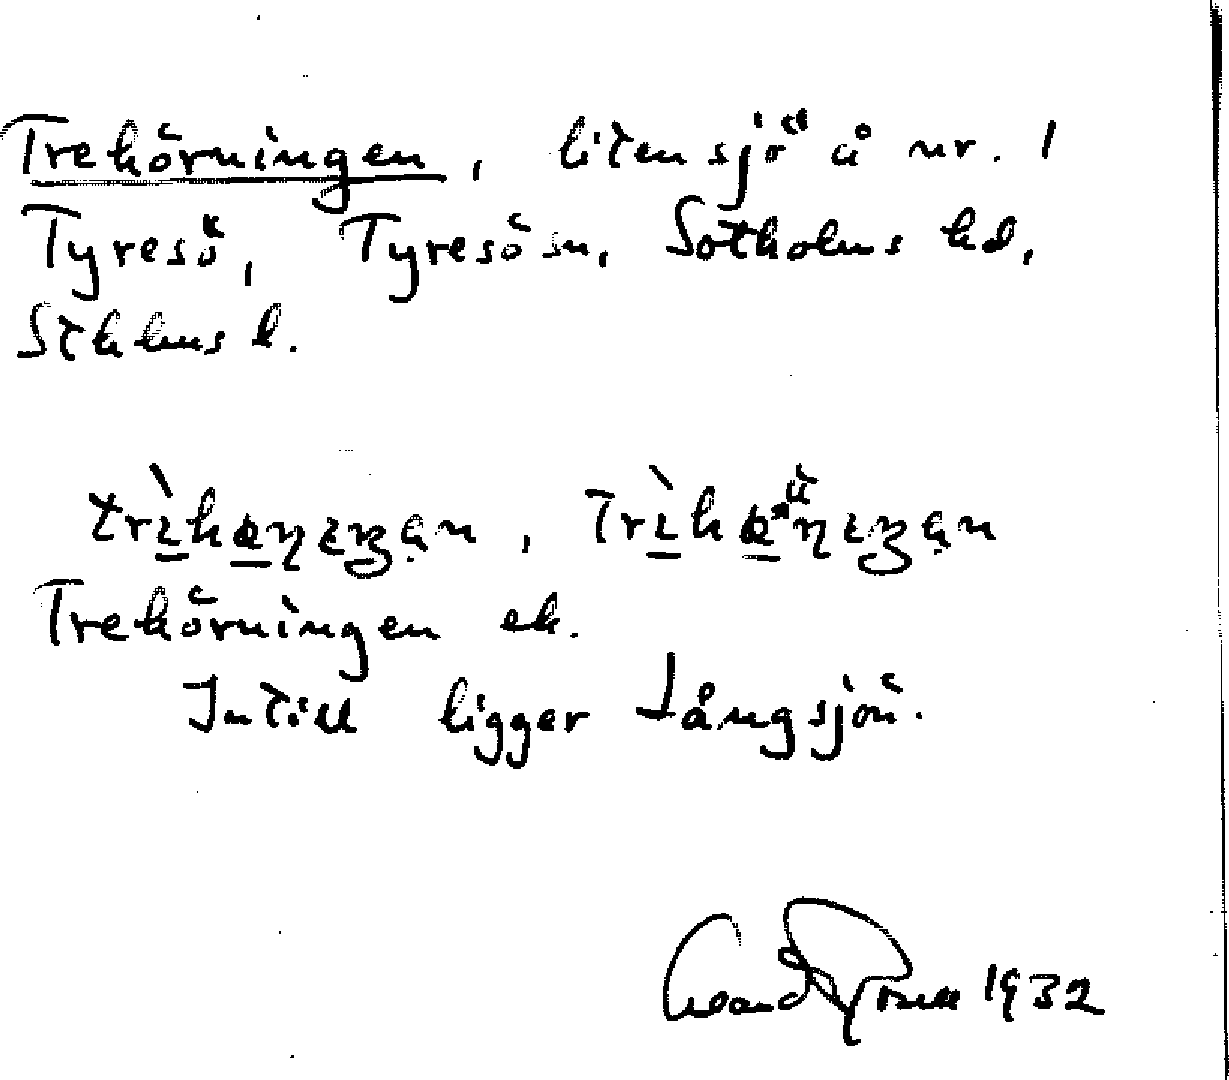 Trehörningen, liten sjö å nr. 1
Tyresö, Tyresö sn, Sotholms hd,
Sthlms l.
Trehörningen ek.
Intill ligger Långsjön.
1932